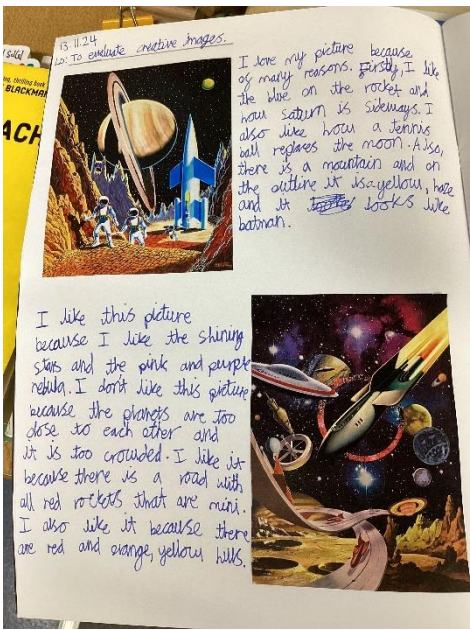 13.11.24
LO: To evaluate creative images.
I love my picture because
of many reasons. Firstly, I like
the blue on the rocket and
how saturn is sideways. I
also like how a tennis
ball replaces the moon. Also,
there is a mountain and on
the outline it is a yellow, haze
and it looks like
batman.
I like this picture
because I like the shining
stars and the pink and purple
nebula. I don't like this picture
because the planets are too
close to each other and
it is too crowded. I like it
because there is a road with
all red rockets that are mini.
I also like it because there
are red and orange, yellow hills.
thrilling book
BLACKMA
ACH